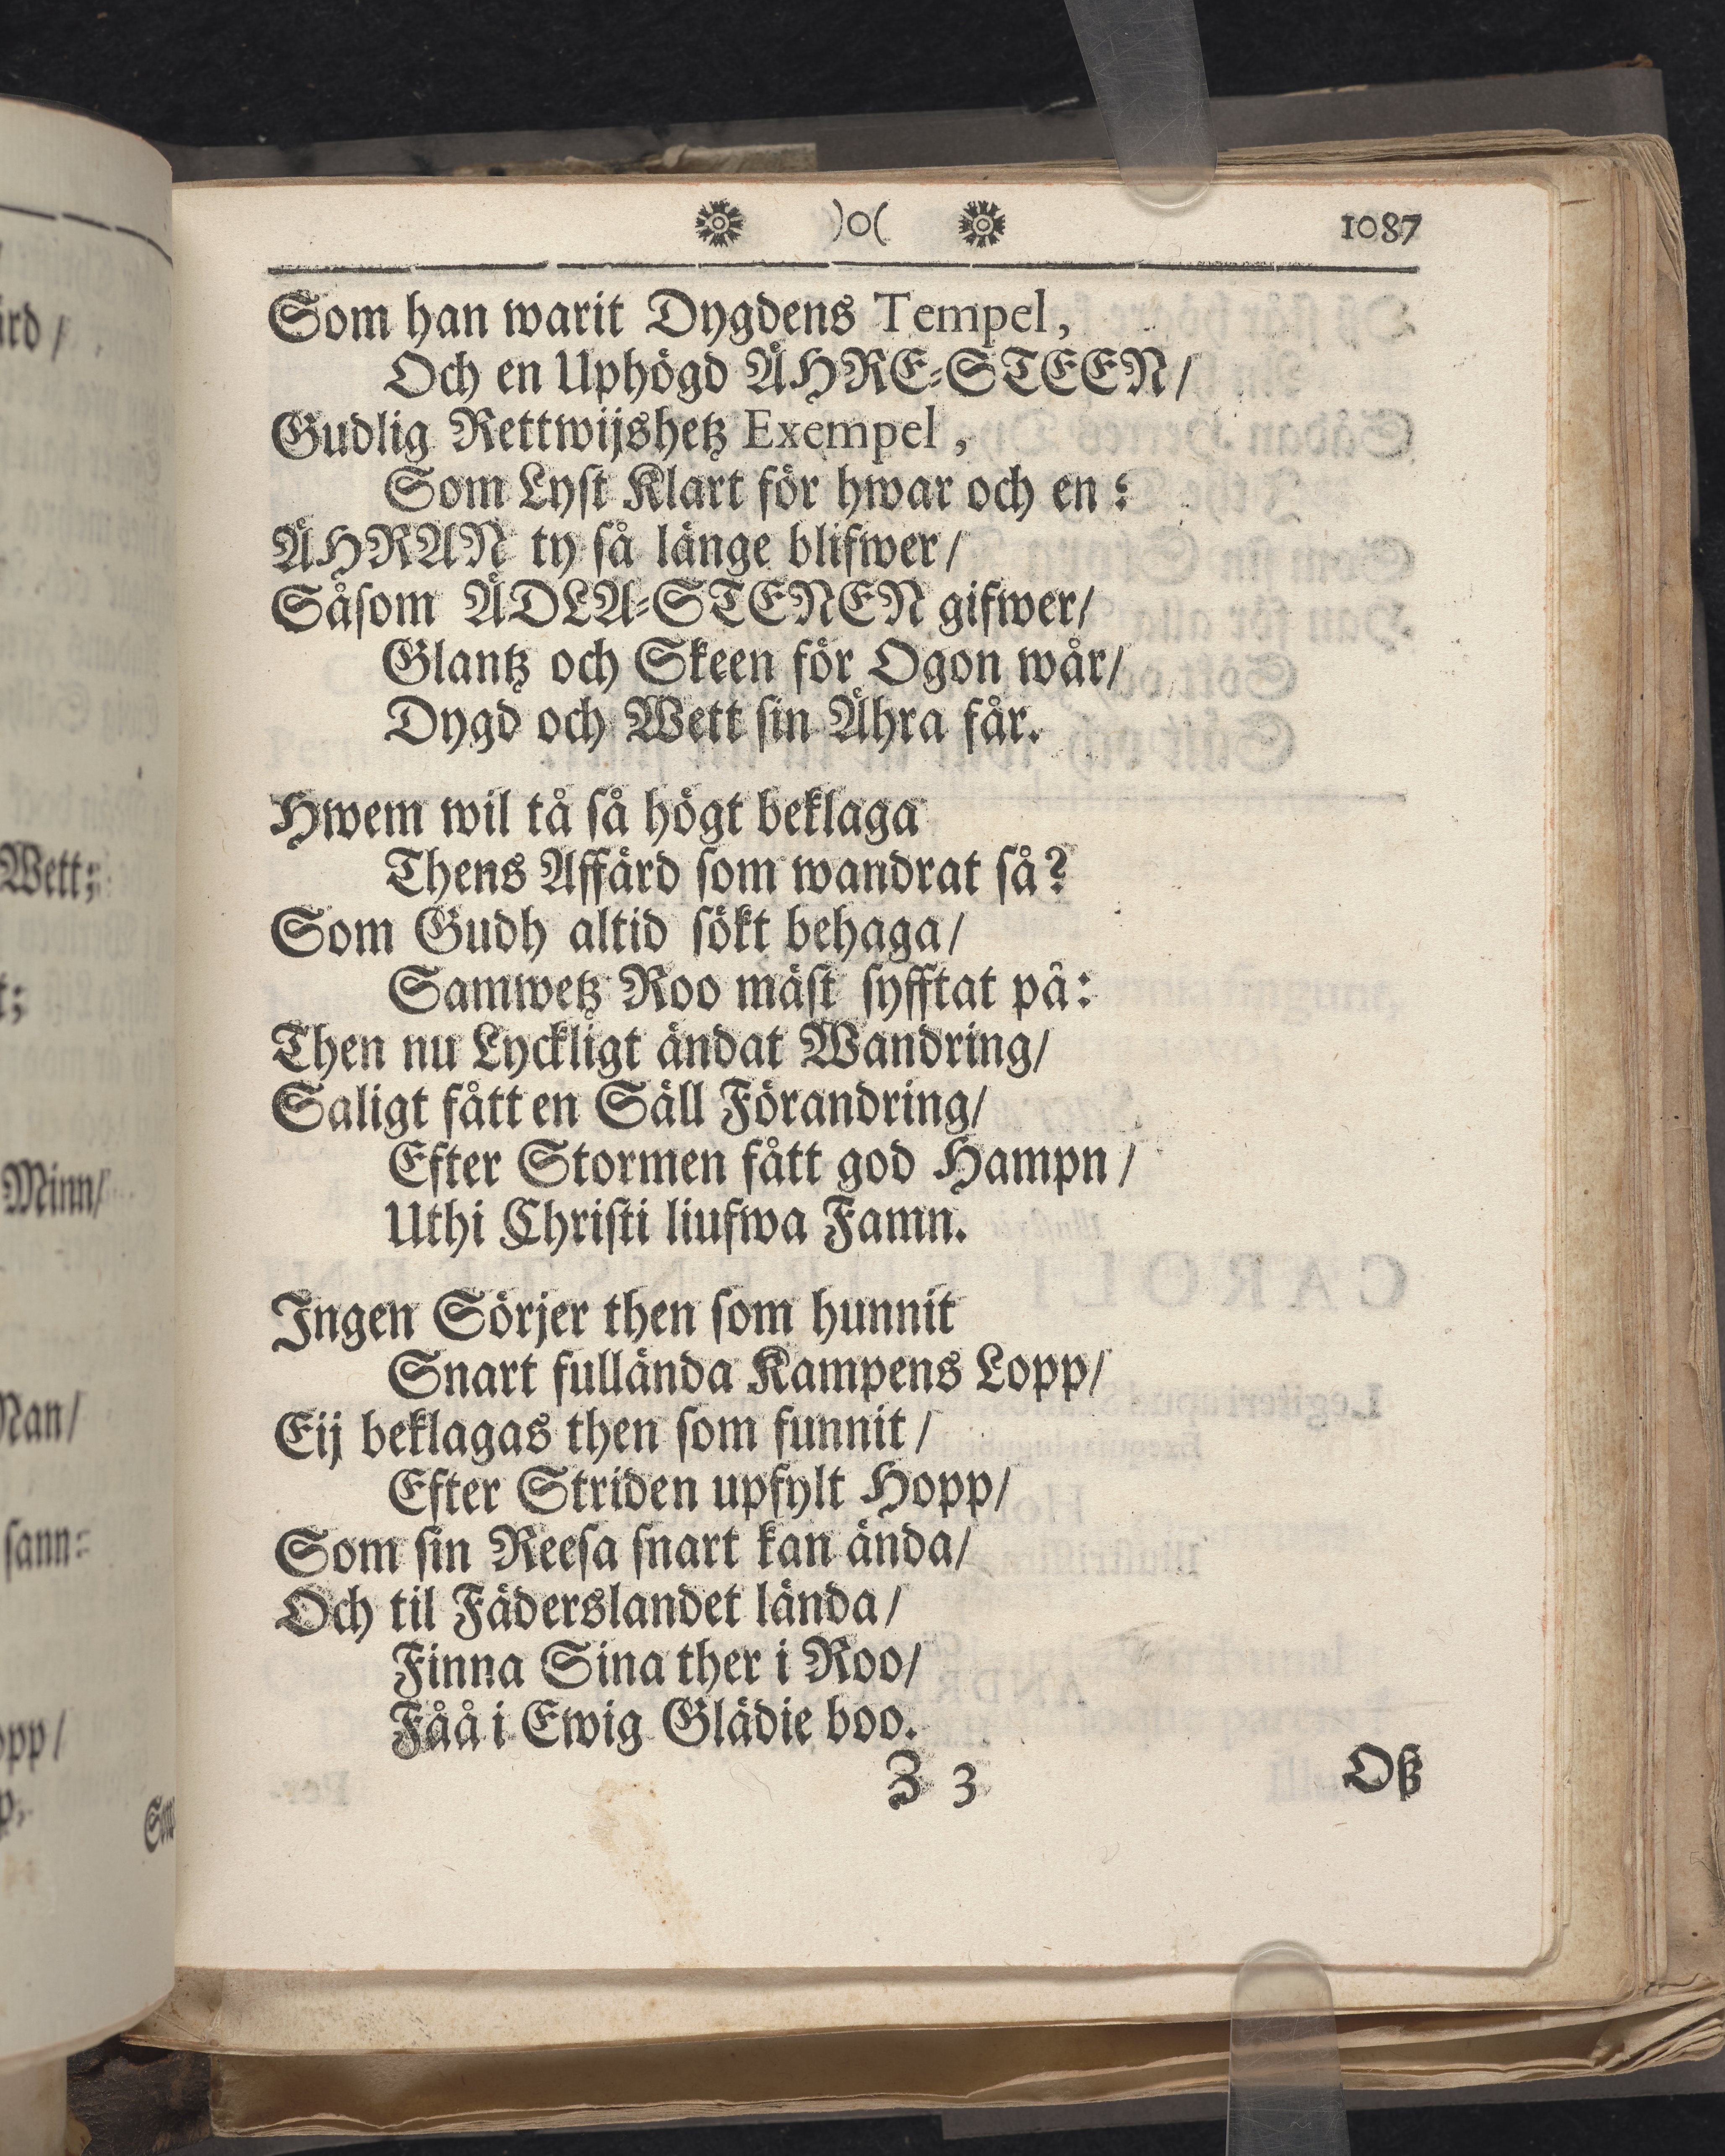 )o( 1087
Som han warit Dygdens Tempel,
Och en Uphögd ÄHRE-STEEN/
Gudlig Rettwijshetz Exempel,
Som Lyst Klart för hwar och en:
ÄHRAN ty så länge blifwer/
Såsom ÄDLA-STENEN gifwer/
Glantz och Skeen för Ogon wår/
Dygd och Wett sin Ähra får.
Hwem wil tå så högt beklaga
Thens Affärd som wandrat så?
Som Gudh altid sökt behaga/
Samwetz Roo mäst syfftat på:
Then nu Lyckligt ändat Wandring/
Saligt fått en Säll Förandring/
Efter Stormen fått god Hampn/
Uthi Christi liufwa Famn.
Ingen Sörjer then som hunnit
Snart fullända Kampens Lopp/
Eij beklagas then som funnit/
Efter Striden upfylt Hopp/
Som sin Reesa snart kan ända/
Och til Fäderslandet lända/
Finna Sina ther i Roo/
Fåå i Ewig Glädie boo.
Z 3 Oß
Wett;
Minn/